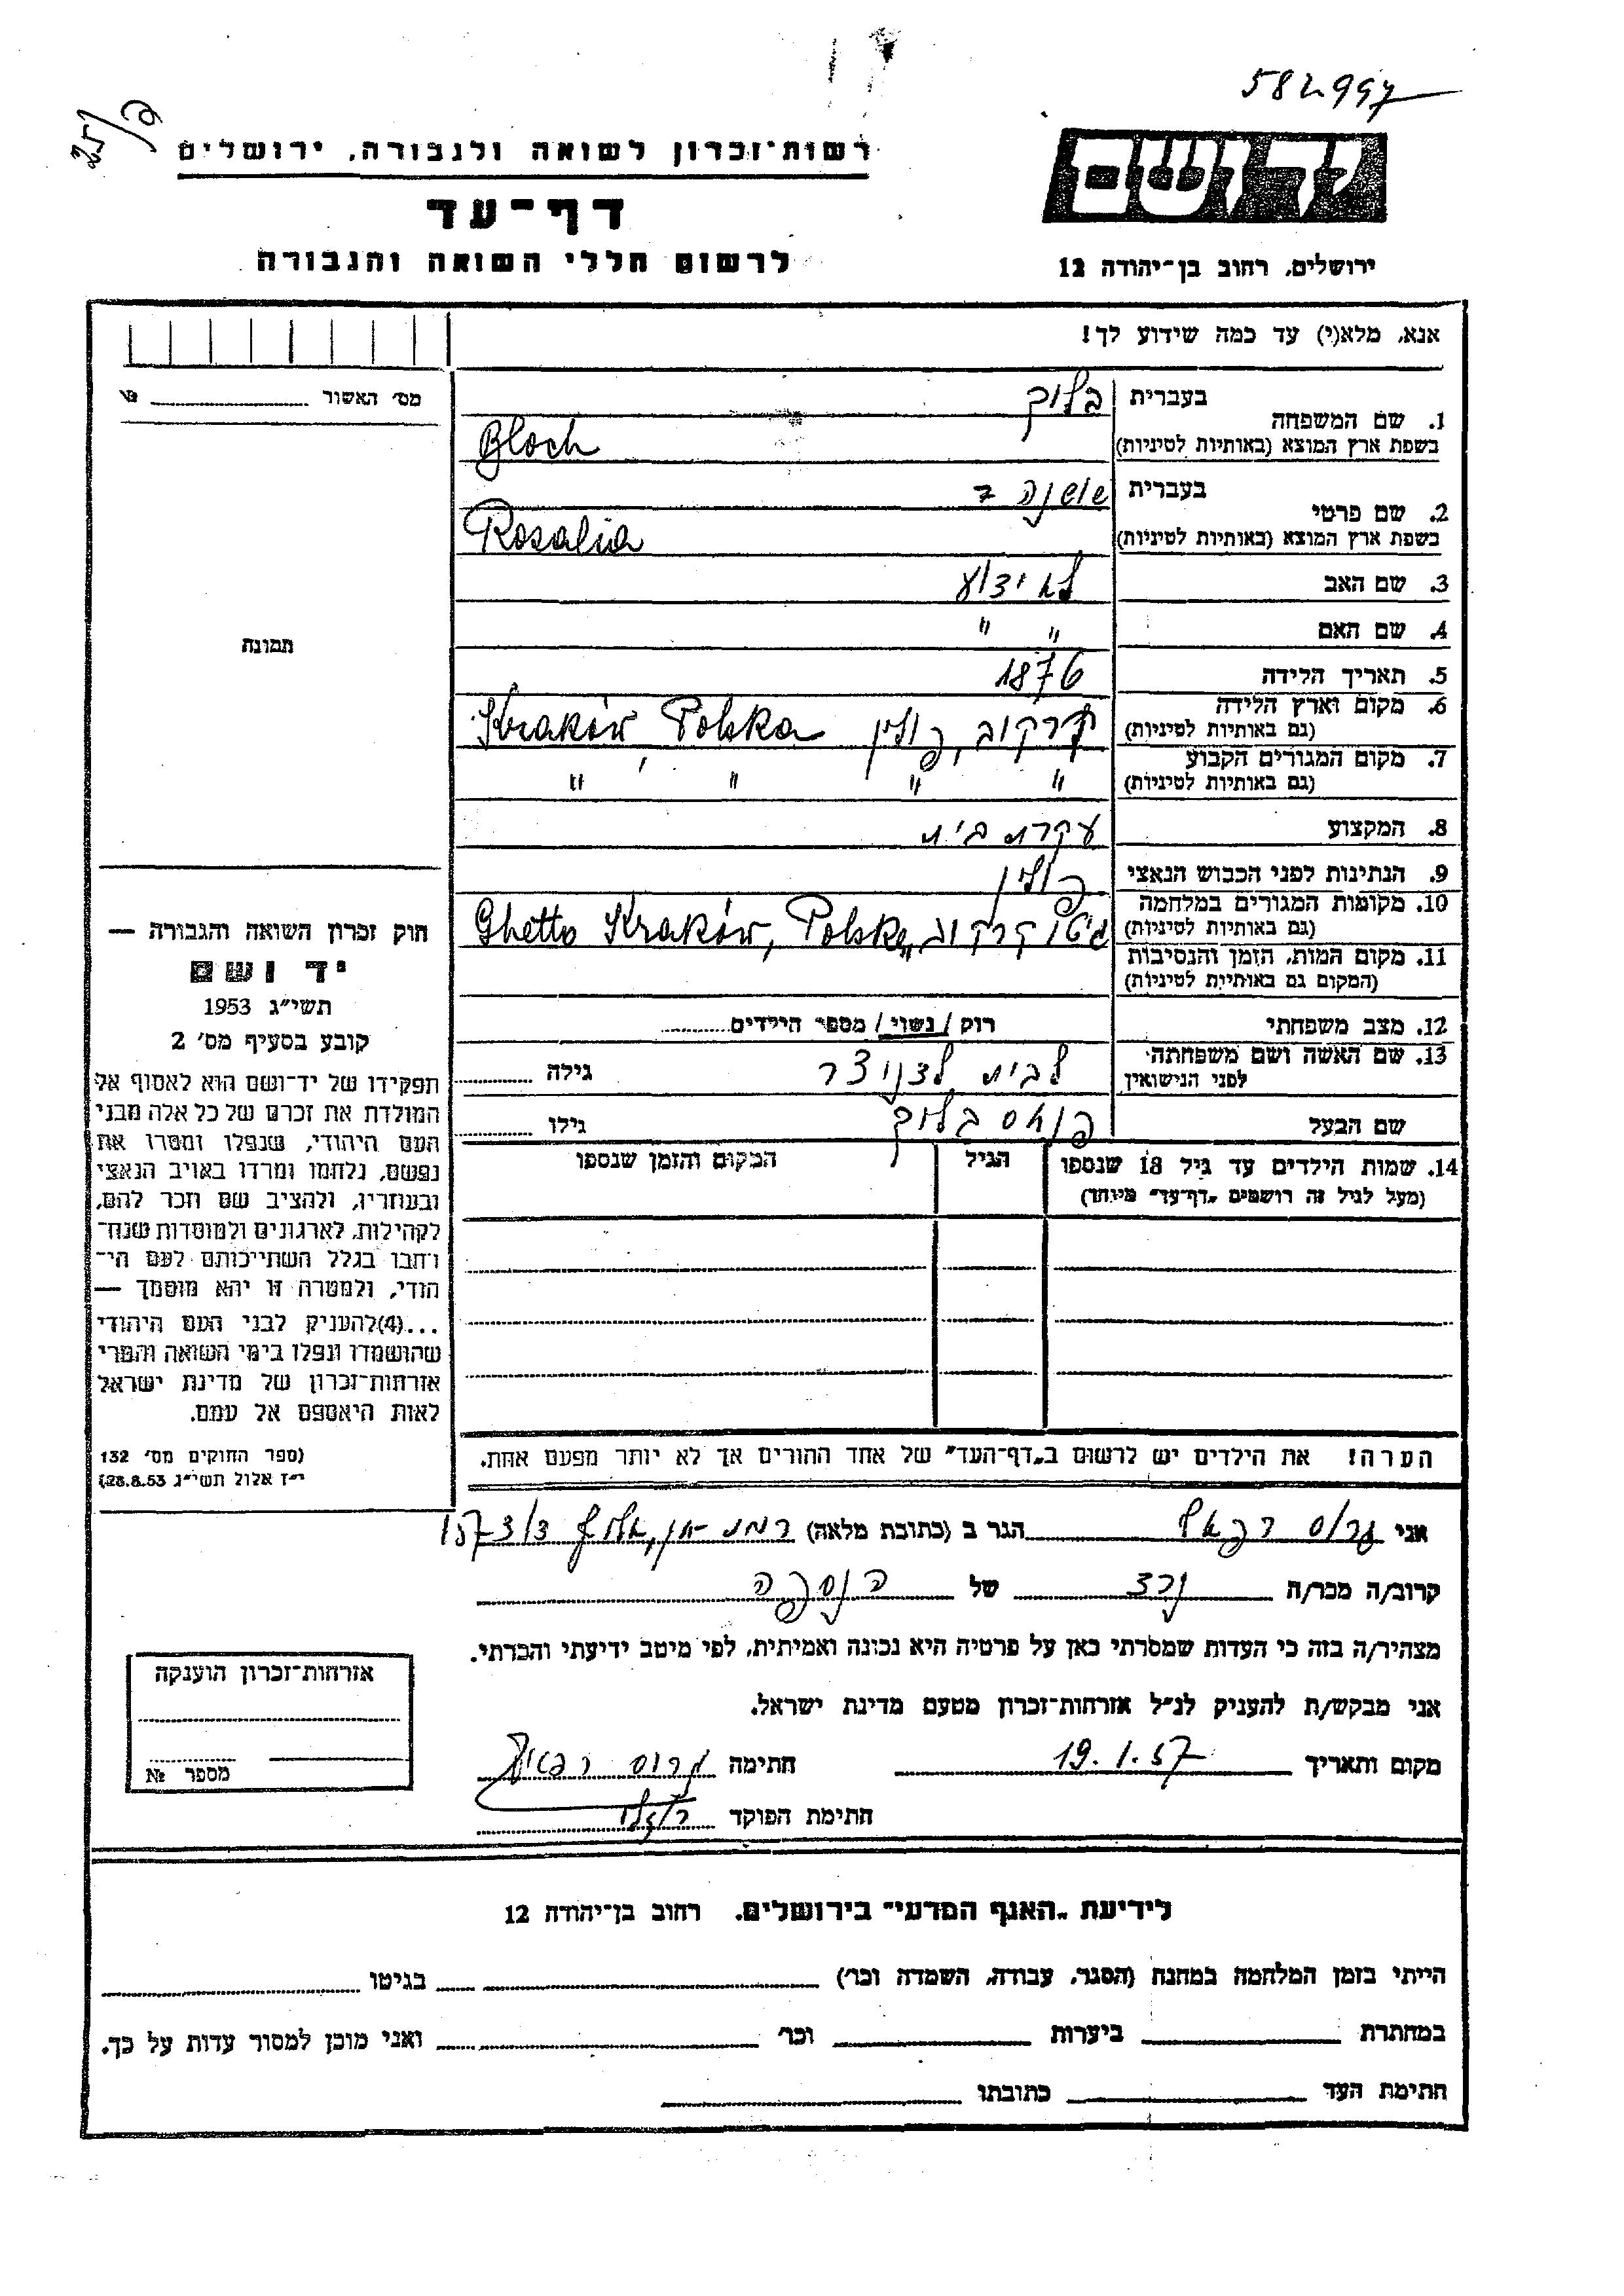 582997
25/ק
רשות־זכרון לשואה ולגבורה, ירושלים
יד ושם
דף־עד
לרשום חללי השואה והגבורה
ירושלים, רחוב בן־יהודה 12
אנא, מלא(י) עד כמה שידוע לך!
מס׳ האשור №
1. שם המשפחה
בעברית בלוך
בשפת ארץ המוצא (באותיות לטיניות) Bloch
2. שם פרטי
בעברית שושנה
בשפת ארץ המוצא (באותיות לטיניות) Rosalia
3. שם האב לא ידוע
4. שם האם " "
5. תאריך הלידה 1876
6. מקום וארץ הלידה
(גם באותיות לטיניות) קרקוב, פולין Kraków, Polska
7. מקום המגורים הקבוע
(גם באותיות לטיניות) " " " "
8. המקצוע עקרת בית
9. הנתינות לפני הכבוש הנאצי פולין
10. מקומות המגורים במלחמה
(גם באותיות לטיניות) גיטו קרקוב, Ghetto Kraków, Polska
11. מקום המות, הזמן והנסיבות
(המקום גם באותיות לטיניות)
12. מצב משפחתי רוק / נשוי / מספר הילדים
13. שם האשה ושם משפחתה
לפני הנישואין לבית גילה
שם הבעל בלוך גילו
14. שמות הילדים עד גיל 18 שנספו הגיל המקום והזמן שנספו
(מעל לגיל זה רושמים „דף־עד" מיוחד)
הערה! את הילדים יש לרשום ב„דף־העד" של אחד ההורים אך לא יותר מפעם אחת.
תמונה
חוק זכרון השואה והגבורה —
יד ושם
תשי״ג 1953
קובע בסעיף מס׳ 2
תפקידו של יד־ושם הוא לאסוף אל
המולדת את זכרם של כל אלה מבני
העם היהודי, שנפלו ומסרו את
נפשם, נלחמו ומרדו באויב הנאצי
ובעוזריו, ולהציב שם וזכר להם,
לקהילות, לארגונים ולמוסדות שנח־
רבו בגלל השתייכותם לעם הי־
הודי, ולמטרה זו יהא מוסמך —
...(4)להעניק לבני העם היהודי
שהושמדו ונפלו בימי השואה והמרי
אזרחות־זכרון של מדינת ישראל
לאות היאספם אל עמם.
(ספר החוקים מס׳ 132
י״ז אלול תשי״ג 28.8.53)
אני הגר ב (כתובת מלאה) רמת־גן,
קרוב/ה מכר/ה נכד של הנספה
מצהיר/ה בזה כי העדות שמסרתי כאן על פרטיה היא נכונה ואמיתית, לפי מיטב ידיעתי והכרתי.
אני מבקש/ת להעניק לנ״ל אזרחות־זכרון מטעם מדינת ישראל.
מקום ותאריך 19.1.57 חתימה
חתימת הפוקד
אזרחות־זכרון הוענקה
מספר №
לידיעת „האגף המדעי" בירושלים, רחוב בן־יהודה 12
הייתי בזמן המלחמה במחנה (הסגר, עבודה, השמדה וכר׳) בגיטו
במחתרת ביערות וכר׳ ואני מוכן למסור עדות על כך.
חתימת העד כתובתו